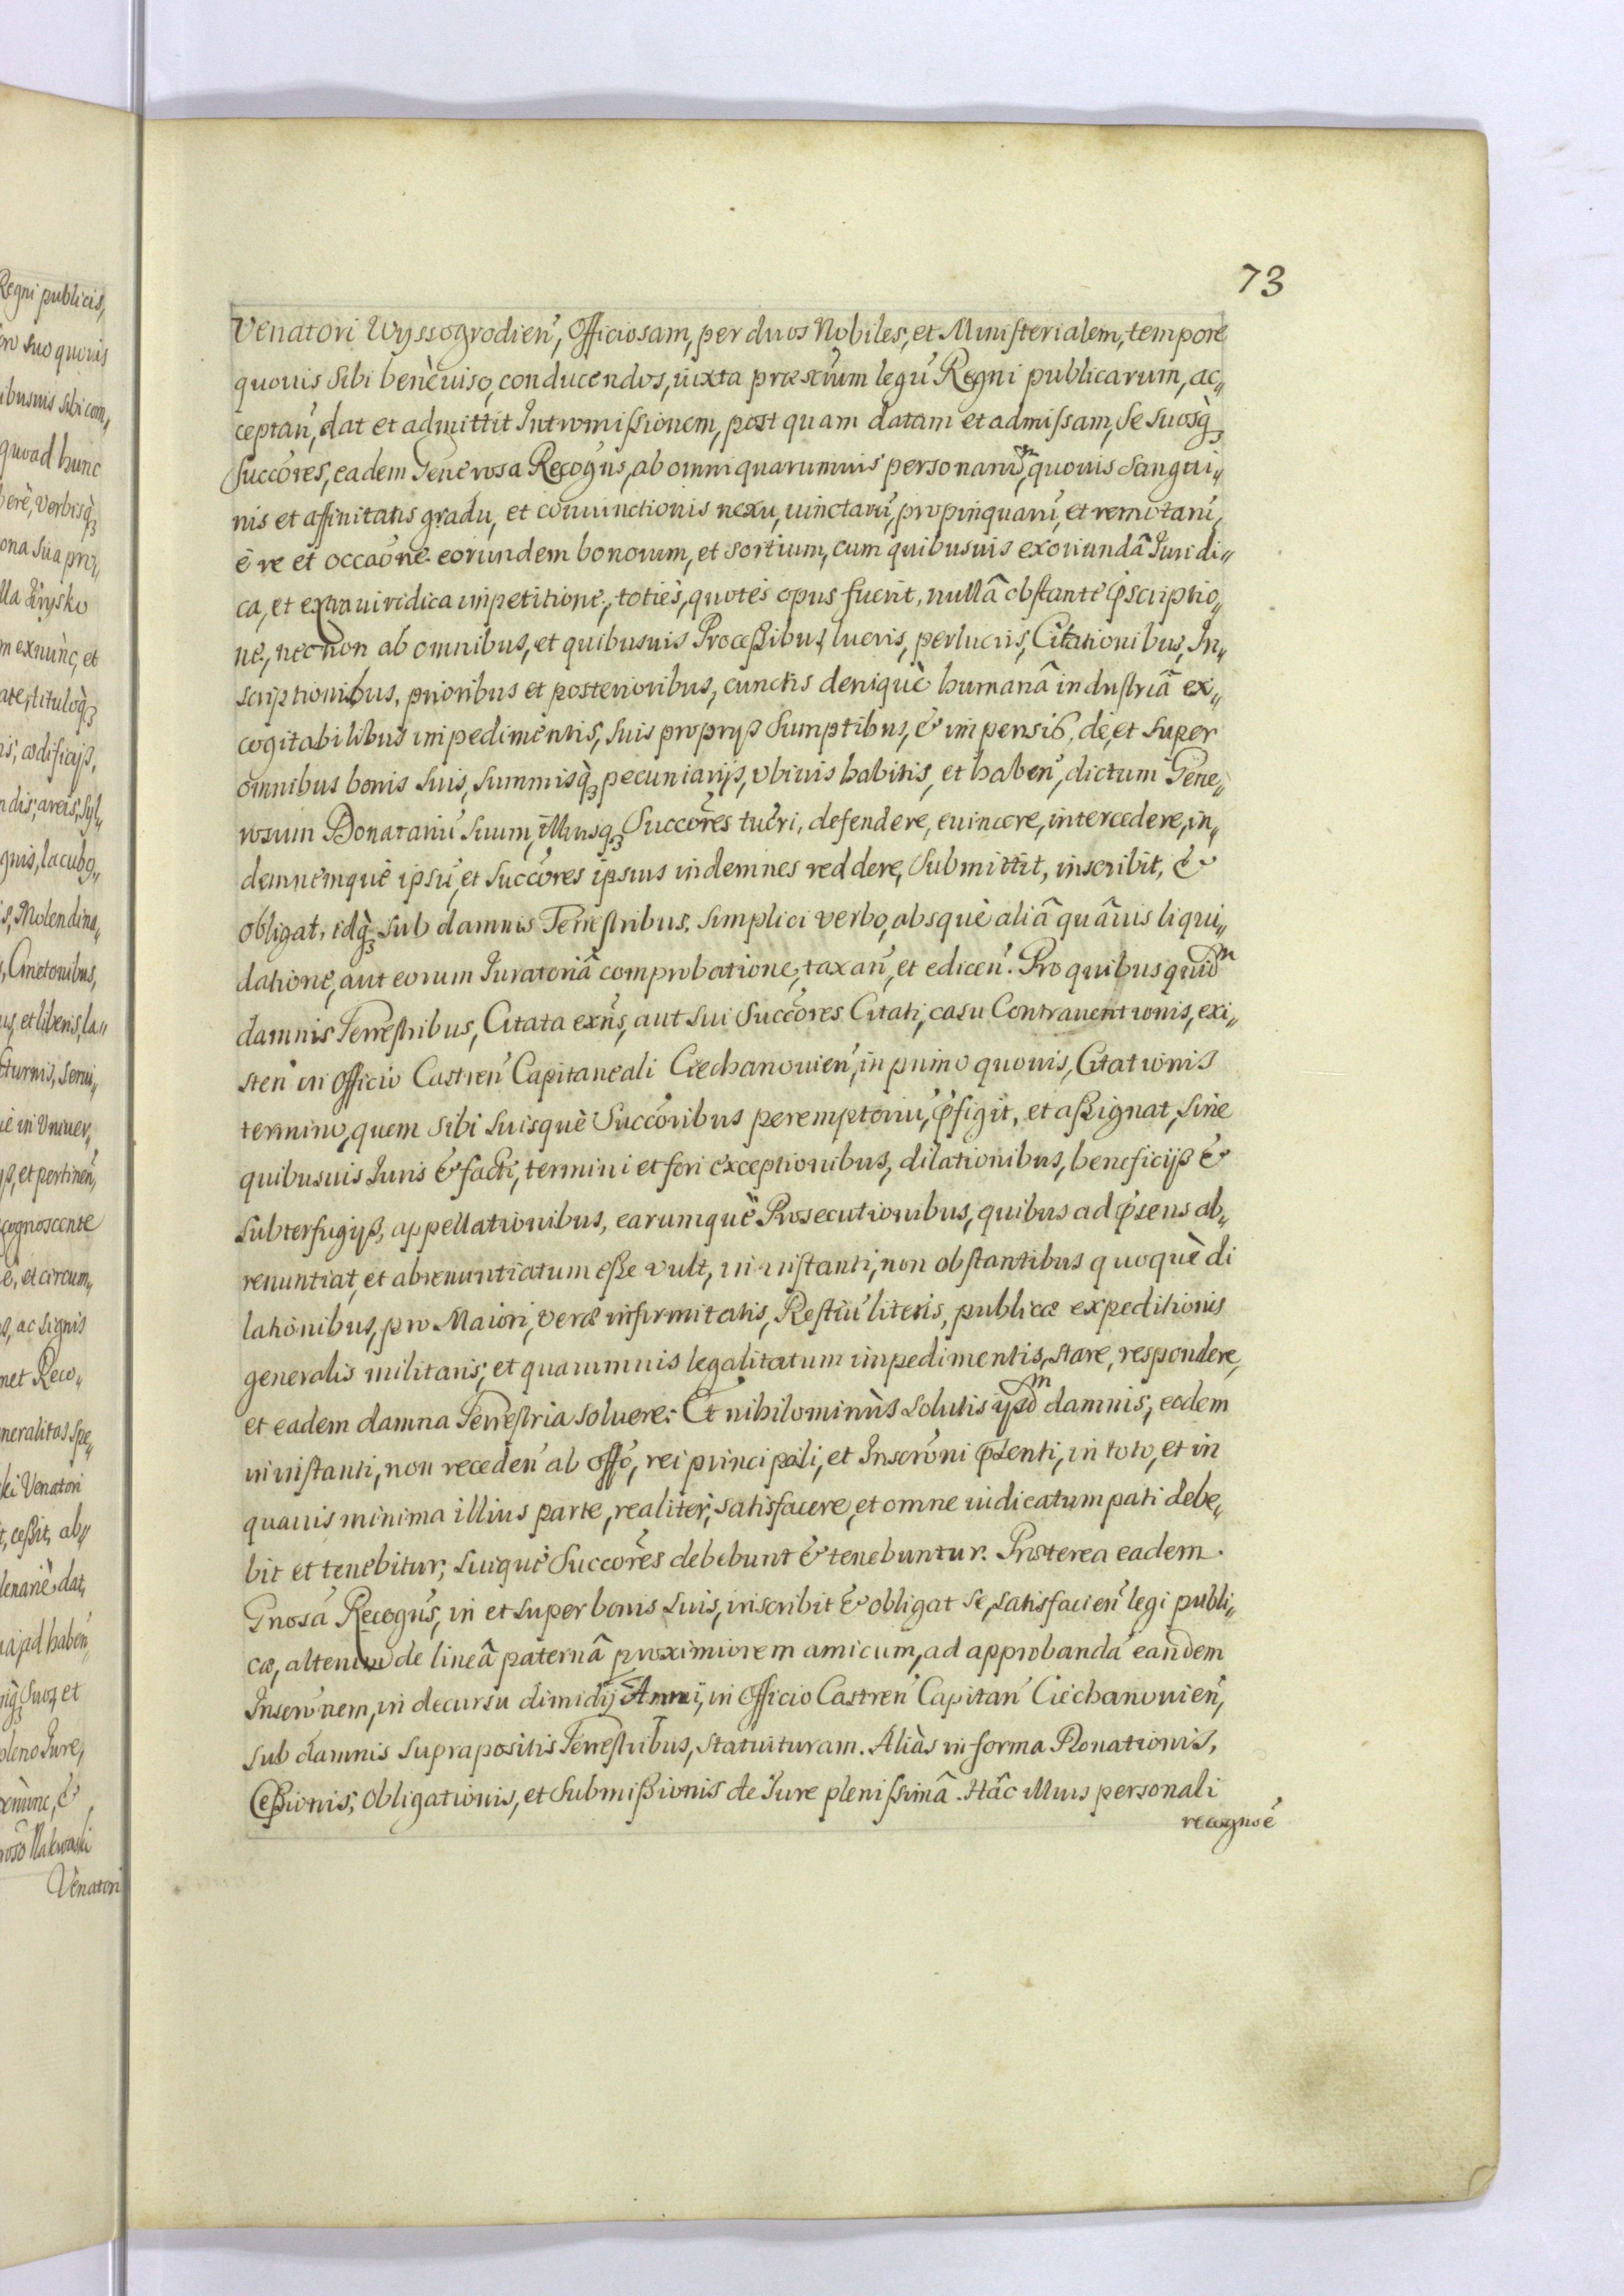 73
Venatori Wyssogrodień, Officiosam, per duos Nobiles, et Ministerialem, tempore
quouis sibi benèuiso, conducendos, iuxta præscrum legū Regni publicarum, ac„
ceptań, dat et admittit Intromissionem, post quam datam et admissam, se suosq̀ꝫ
succōres, eadem Generosa Recogńs, ab omni quarumuis personarū, quouis sangui„
nis et affinitatis gradu, et coniunctionis nexu, uinctarū, propinquarū, et remotarū,
è re et occaōne eorundem bonorum, et sortium, cum quibusuis exoriundâ Iuridi„
ca, et extraiuridica impetitione, totiès, quotès opus fuerit, nullâ obstante p̄scriptio„
ne, nec non ab omnibus, et quibusuis Processibus, lucris, perlucris, Citationibus, In„
scriptionibus, prioribus et posterioribus, cunctis deniquè humanâ industriâ ex„
cogitabilibus impedimentis, suis proprijs sumptibus, & impensis, de, et super
omnibus bonis suis, summisq̀ꝫ pecuniarijs, vbiuis habitis, et habeń, dictum Gene„
rosum Donatariū suum, illiusqꝫ Succōres tueri, defendere, euincere, intercedere, in„
demnemquè ipsū, et succōres ipsius indemnes reddere, submittit, inscribit, &
obligat, idq̀ꝫ sub damnis Terrestribus, simplici verbo, absquè aliâ quâuis liqui„
datione, aut eorum Iuratoriâ comprobatione, taxań, et ediceń. Pro quibus quid͞m
damnis Terrestribus, Citata exńs, aut sui Succōres Citati, casu Contrauentionis, exi„
steń in Officio Castreń Capitaneali Ciechanouień, in primo quouis, Citationis
termino, quem sibi suisquè Succōribus peremptoriū, p̄figit, et assignat, sine
quibusuis Iuris & facti, termini et fori exceptionibus, dilationibus, beneficijs &
subterfugijs, appellationibus, earumquè Prosecutionibus, quibus ad p̄sens ab„
renuntiat, et abrenuntiatum esse vult, in instanti, non obstantibus quoquè di
lationibus, pro Maiori, veræ infirmitatis, literis, publicæ expeditionis
generalis militaris, et quarumuis legalitatum impedimentis, stare, respondere,
et eadem damna Terrestria soluere. Et nihilominùs solutis ijsd͞m damnis, eodem
in instanti, non recedeń ab offo, rei principali, et Inscrōni p̄senti, in toto, et in
quauis minima illius parte, realiter, satisfacere, et omne iudicatum pati debe„
bit et tenebitur, suiquè Succōres debebunt & tenebuntur. Præterea eadem
Gnosa Recogńs, in et super bonis suis, inscribit & obligat se, satisfacień legi publi„
cæ, alterum de lineâ paternâ proximiorem amicum, ad approbandā eandem
Inscrōnem, in decursu dimidij Anni, in Officio Castreń Capitań Ciechanouień,
sub damnis suprapositis Terrestribus, statuituram. Aliàs in forma Donationis,
Cessionis, Obligationis, et Submissionis de Iure plenissimâ. Hâc illius personali
recognoē